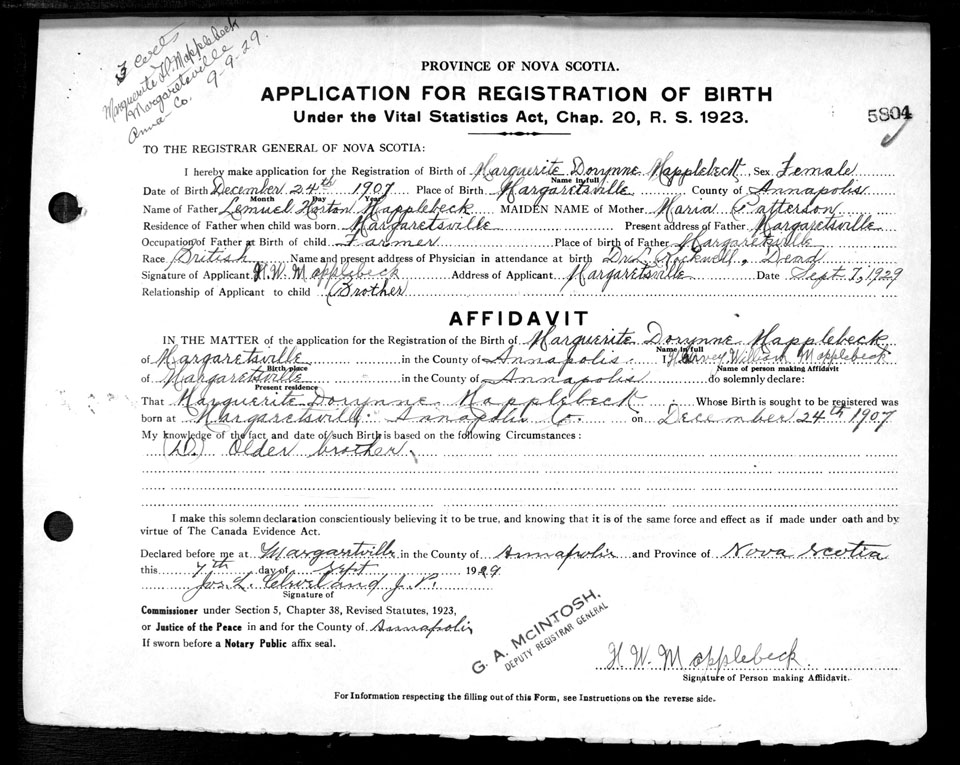 3 Certs
Marguerite D. Mapplebeck
Margaretsville
Anna. Co. 9-9-29.
PROVINCE OF NOVA SCOTIA.
APPLICATION FOR REGISTRATION OF BIRTH
5804
Under the Vital Statistics Act, Chap. 20, R. S. 1923.
TO THE REGISTRAR GENERAL OF NOVA SCOTIA:
I hereby make application for the Registration of Birth of Marguerite Dorynne Mapplebeck Sex Female
Name in full
Date of Birth December 24th 1907 Place of Birth Margaretsville County of Annapolis
Month Day Year
Name of Father Lemuel Horton Mapplebeck MAIDEN NAME of Mother Maria Patterson
Residence of Father when child was born Margaretsville Present address of Father Margaretsville
Occupation of Father at Birth of child Farmer Place of birth of Father Margaretsville
Race British Name and present address of Physician in attendance at birth Dr. Rockwell, Dead
Signature of Applicant H. W. Mapplebeck Address of Applicant Margaretsville Date Sept 7, 1929
Relationship of Applicant to child (Brother
AFFIDAVIT
IN THE MATTER of the application for the Registration of the Birth of Marguerite Dorynne Mapplebeck
Name in full
of Margaretsville in the County of Annapolis. I Harvey William Mapplebeck
Birth place Name of person making Affidavit
of Margaretsville in the County of Annapolis do solemnly declare:
Present residence
That Marguerite Dorynne Mapplebeck Whose Birth is sought to be registered was
born at Margaretsville Annapolis Co. on December 24th 1907
My knowledge of the fact, and date of such Birth is based on the following Circumstances:
(D.) Older brother.
I make this solemn declaration conscientiously believing it to be true, and knowing that it is of the same force and effect as if made under oath and by
virtue of The Canada Evidence Act.
Declared before me at Margaretville in the County of Annapolis and Province of Nova Scotia
this 7th day of Sept 1929
Jos. L. Cleveland J. P.
Signature of
Commissioner under Section 5, Chapter 38, Revised Statutes, 1923,
or Justice of the Peace in and for the County of Annapolis
If sworn before a Notary Public affix seal.
G. A. McINTOSH,
DEPUTY REGISTRAR GENERAL
H. W. Mapplebeck.
Signature of Person making Affidavit.
For Information respecting the filling out of this Form, see Instructions on the reverse side.